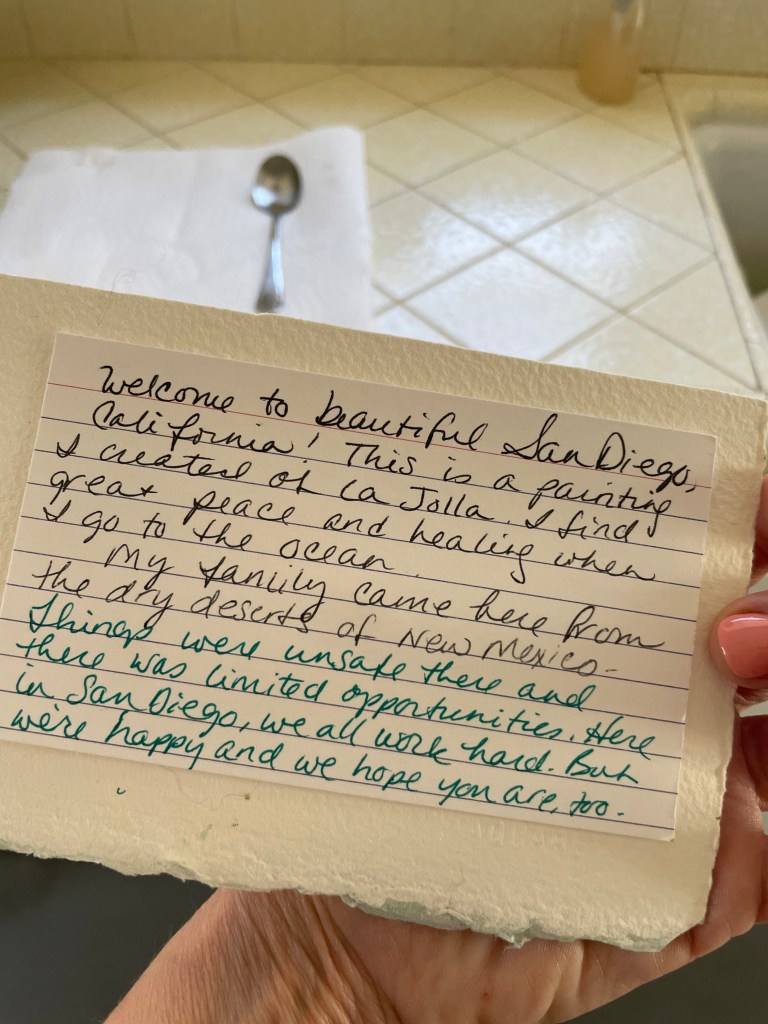 Welcome to beautiful San Diego,
California! This is a painting
I created of La Jolla. I find
great peace and healing when
I go to the ocean.
My family came here from
the dry deserts of New Mexico.
Things were unsafe there and
there was limited opportunities. Here
in San Diego, we all work hard. But
we're happy and we hope you are, too.